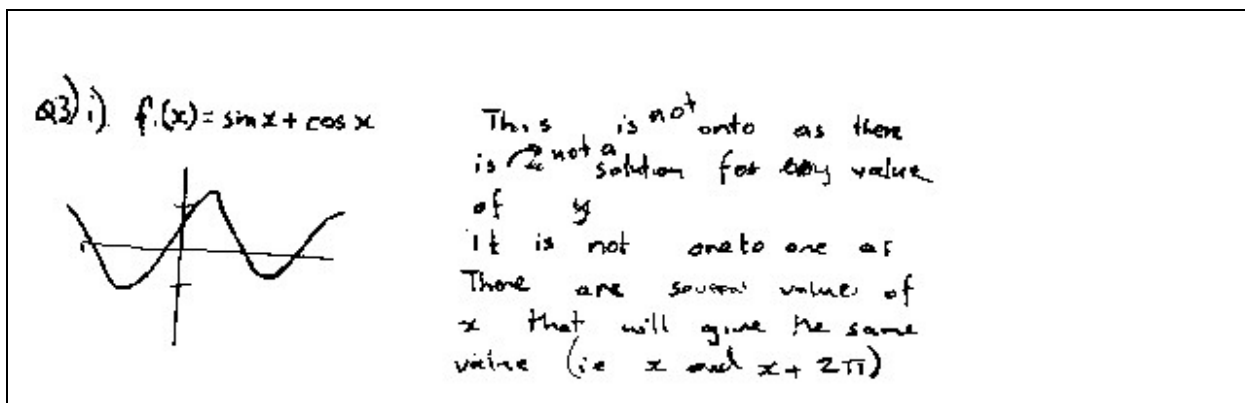 Q3) i). f.(x) = sin x + cos x
This is not onto as there
is not a solution for every value
of y
It is not one to one as
There are several values of
x that will give the same
value (ie x and x + 2π)